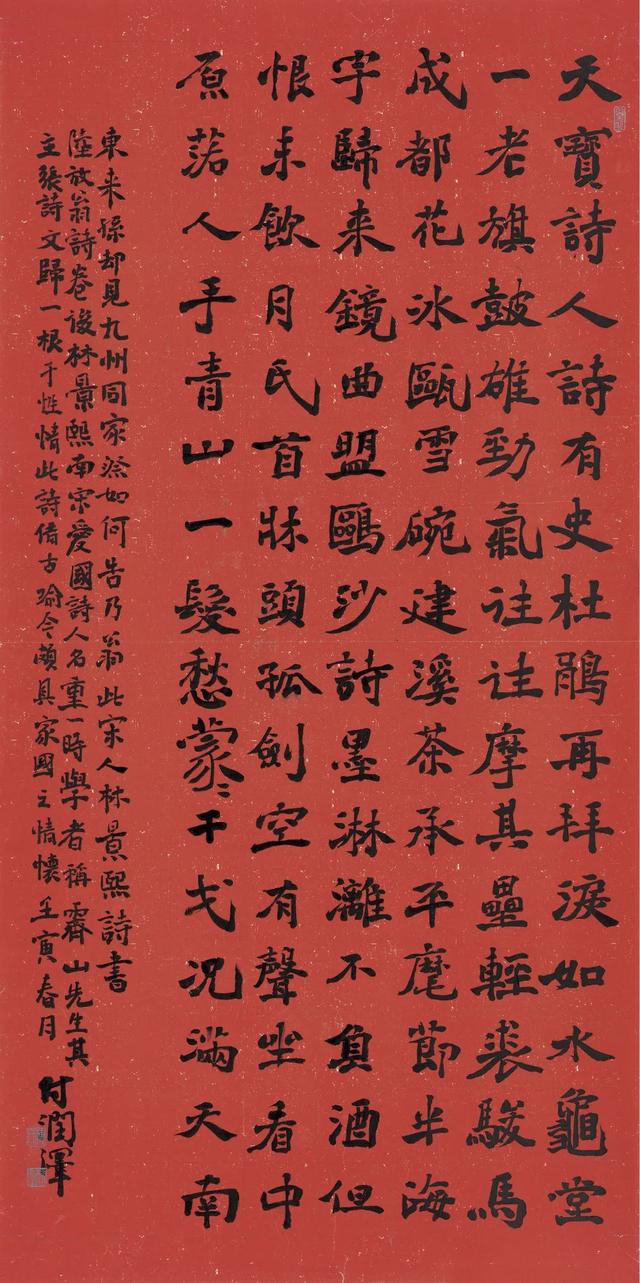 天寶詩人詩有史杜鵑再拜淚如水龜堂
一老旗鼓雄勁氣往往摩其壘輕裘駿馬
成都花冰甌雪碗建溪茶承平麾節半海
宇歸来鏡曲盟鷗沙詩墨淋漓不負酒但
恨未飲月氏首牀頭孤劍空有聲坐看中
原落人手青山一髮愁蒙〻干戈况滿天南
東来孫却見九州同家祭如何告乃翁此宋人林景熙詩書
陸放翁詩卷後林景熙南宋愛國詩人名重一時學者稱霽山先生其
主張詩文歸一根于性情此詩借古喻今頗具家國之情懷壬寅春月 付潤澤